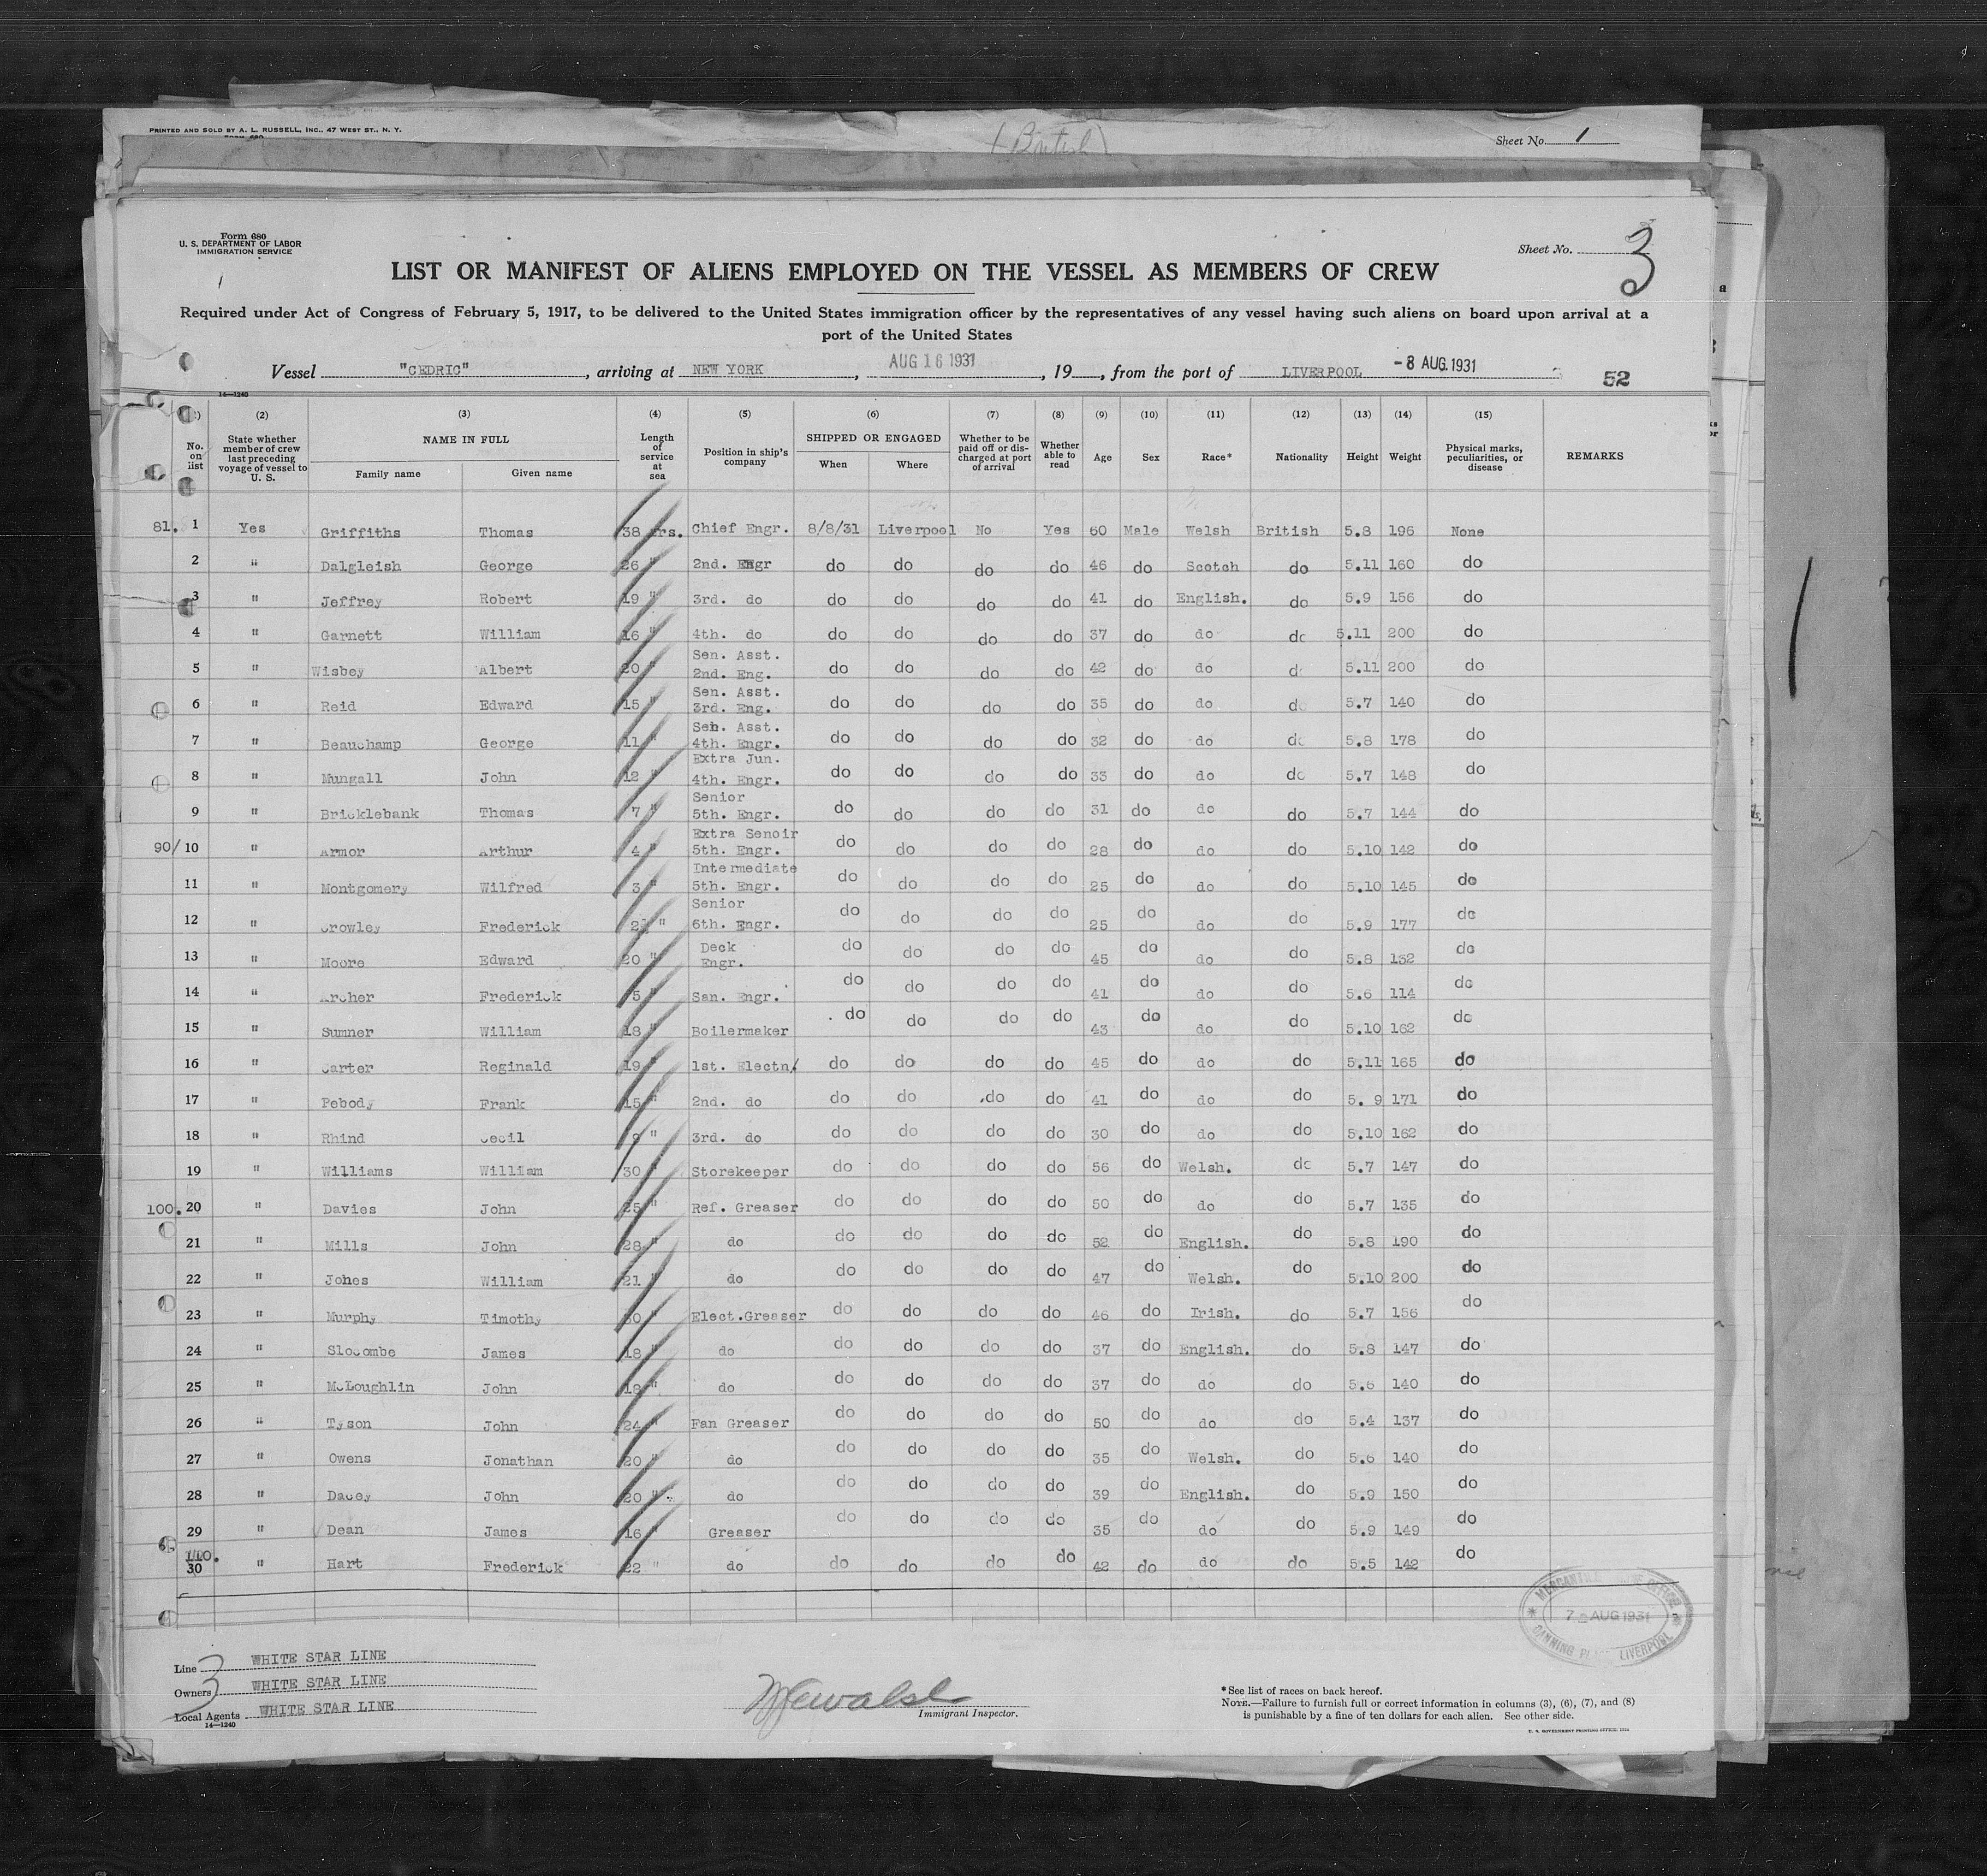 PRINTED AND SOLD BY A. L. RUSSELL, INC., 47 WEST ST., N. Y.
(British)
Sheet No. 1
Form 680
U. S. DEPARTMENT OF LABOR
IMMIGRATION SERVICE
Sheet No. 3
LIST OR MANIFEST OF ALIENS EMPLOYED ON THE VESSEL AS MEMBERS OF CREW
Required under Act of Congress of February 5, 1917, to be delivered to the United States immigration officer by the representatives of any vessel having such aliens on board upon arrival at a
port of the United States
Vessel "CEDRIC", arriving at NEW YORK, AUG 16 1931, 19, from the port of LIVERPOOL -8 AUG.1931
52
14—1240
(2) (3) (4) (5) (6) (7) (8) (9) (10) (11) (12) (13) (14) (15)
No. on list State whether member of crew last preceding voyage of vessel to U. S. NAME IN FULL Family name Given name Length of service at sea Position in ship's company SHIPPED OR ENGAGED When Where Whether to be paid off or discharged at port of arrival Whether able to read Age Sex Race* Nationality Height Weight Physical marks, peculiarities, or disease REMARKS
81. 1 Yes Griffiths Thomas 38 yrs. Chief Engr. 8/8/31 Liverpool No Yes 60 Male Welsh British 5.8 196 None
2 " Dalgleish George 26 " 2nd. Engr do do do do 46 do Scotch do 5.11 160 do
3 " Jeffrey Robert 19 " 3rd. do do do do do 41 do English. do 5.9 156 do
4 " Garnett William 16 " 4th. do do do do do 37 do do do 5.11 200 do
5 " Wisbey Albert 20 " Sen. Asst. 2nd. Eng. do do do do 42 do do do 5.11 200 do
6 " Reid Edward 15 " Sen. Asst. 3rd. Eng. do do do do 35 do do do 5.7 140 do
7 " Beauchamp George 11 " Sen. Asst. 4th. Engr. do do do do 32 do do do 5.8 178 do
8 " Mungall John 12 " Extra Jun. 4th. Engr. do do do do 33 do do do 5.7 148 do
9 " Bricklebank Thomas 7 " Senior 5th. Engr. do do do do 31 do do do 5.7 144 do
90/ 10 " Armor Arthur 4 " Extra Senoir 5th. Engr. do do do do 28 do do do 5.10 142 do
11 " Montgomery Wilfred 3 " Intermediate 5th. Engr. do do do do 25 do do do 5.10 145 do
12 " Crowley Frederick " Senior 6th. Engr. do do do do 25 do do do 5.9 177 do
13 " Moore Edward 20 " Deck Engr. do do do do 45 do do do 5.8 132 do
14 " Archer Frederick 5 " San. Engr. do do do do 41 do do do 5.6 114 do
15 " Sumner William 18 " Boilermaker do do do do 43 do do do 5.10 162 do
16 " Carter Reginald 19 " 1st. Electn/ do do do do 45 do do do 5.11 165 do
17 " Pebody Frank 15 " 2nd. do do do do do 41 do do do 5. 9 171 do
18 " Rhind Cecil 9 " 3rd. do do do do do 30 do do do 5.10 162 do
19 " Williams William 30 " Storekeeper do do do do 56 do Welsh. do 5.7 147 do
100. 20 " Davies John 25 " Ref. Greaser do do do do 50 do do do 5.7 135 do
21 " Mills John 28 " do do do do do 52 do English. do 5.8 190 do
22 " Jones William 21 " do do do do do 47 do Welsh. do 5.10 200 do
23 " Murphy Timothy 30 " Elect.Greaser do do do do 46 do Irish. do 5.7 156 do
24 " Slocombe James 18 " do do do do do 37 do English. do 5.8 147 do
25 " McLoughlin John 18 " do do do do do 37 do do do 5.6 140 do
26 " Tyson John 24 " Fan Greaser do do do do 50 do do do 5.4 137 do
27 " Owens Jonathan 20 " do do do do do 35 do Welsh. do 5.6 140 do
28 " Dacey John 20 " do do do do do 39 do English. do 5.9 150 do
29 " Dean James 16 " Greaser do do do do 35 do do do 5.9 149 do
110. 30 " Hart Frederick 22 " do do do do do 42 do do do 5.5 142 do
MERCANTILE MARINE OFFICE
7 AUG 1931
CANNING PLACE LIVERPOOL
Line WHITE STAR LINE
3
Owners WHITE STAR LINE
Local Agents WHITE STAR LINE
14—1240
Immigrant Inspector.
*See list of races on back hereof.
NOTE.—Failure to furnish full or correct information in columns (3), (6), (7), and (8)
is punishable by a fine of ten dollars for each alien. See other side.